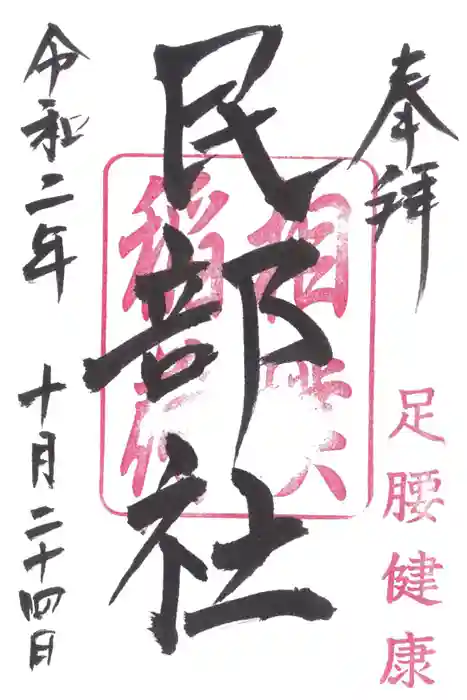 奉拝
足腰健康
民部社
令和二年
十月二十四日